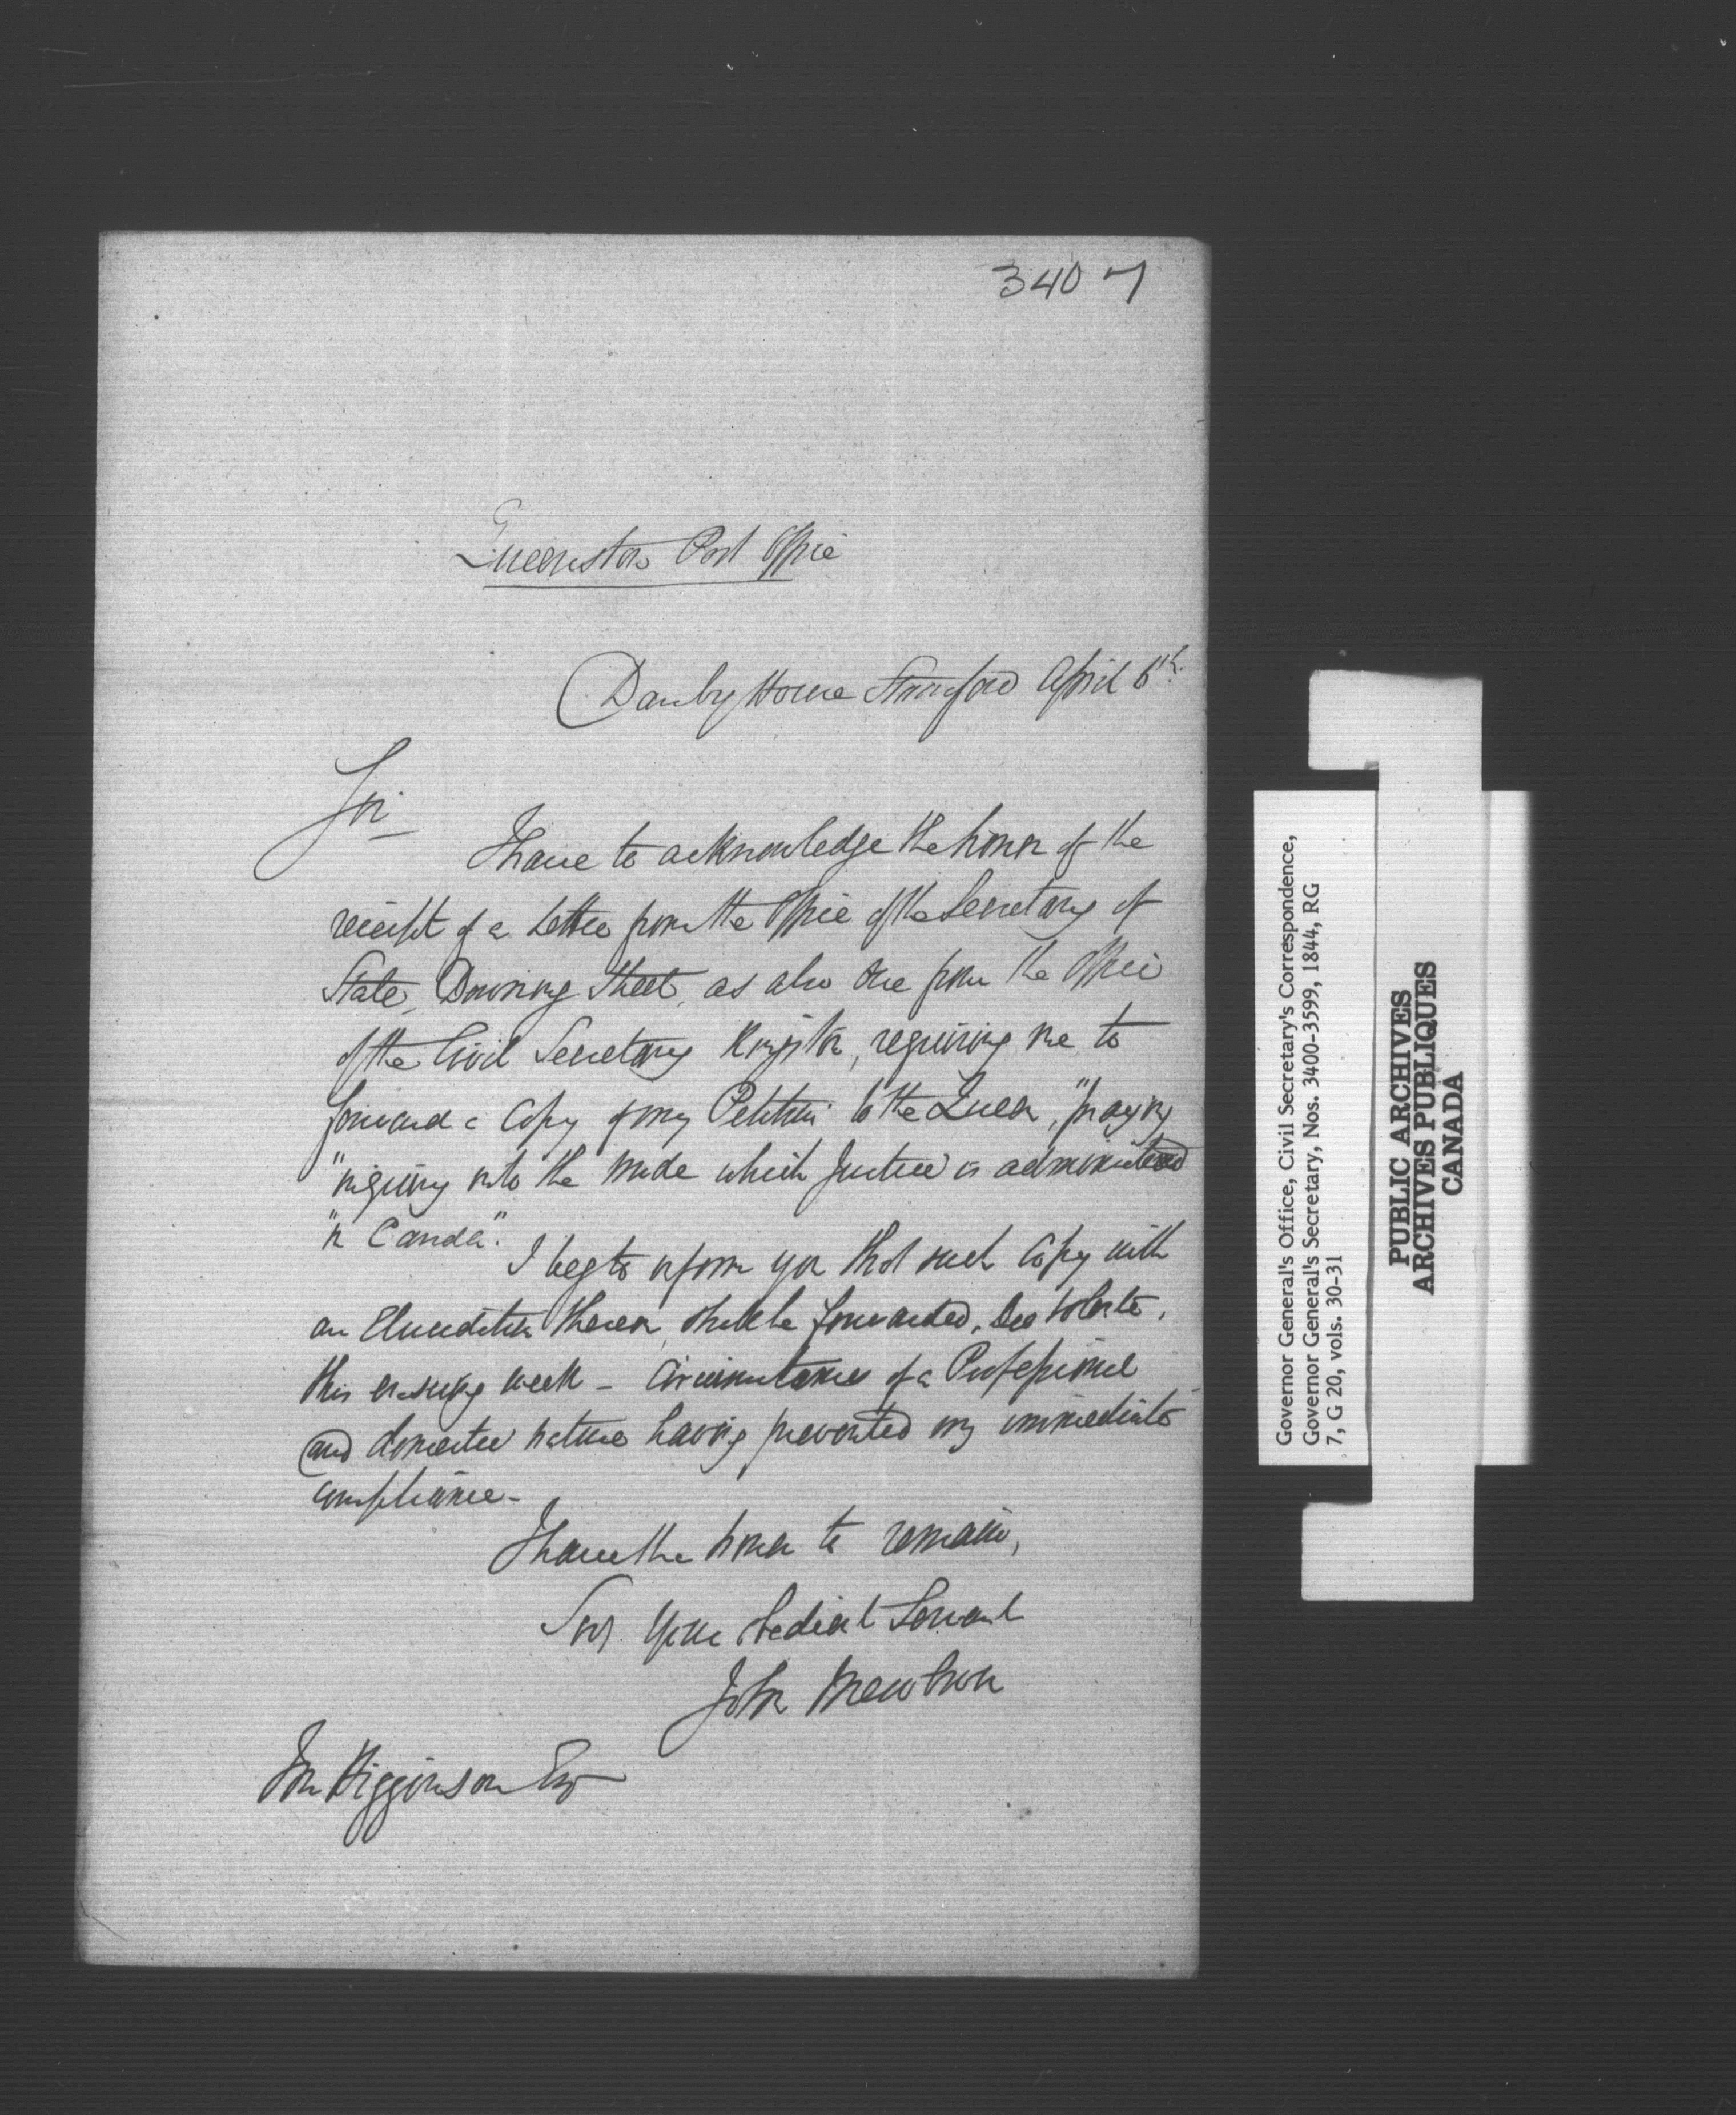 3407
Queenston Post Office
Danby House Stamford April 6th.
Sir
I have to acknowledge the honor of the
receipt of a Letter from the Office of the Secretary of
State, Downing Street, as also One from the Office
of the Civil Secretary Kingston, requiring me to
forward a Copy of my Petition to the Queen, "praying
"inquiry into the mode which Justice is administered
"in Canada".
I beg to inform you that such Copy with
an Elucidation thereon shall be forwarded, Deo Volente,
this ensuing week - Circumstances of a Professional
and domestic nature having prevented my immediate
compliance -
I have the honor to remain,
Sir Your obedient Servant
John
Higginson Esq
Governor General's Office, Civil Secretary's Correspondence,
Governor General's Secretary, Nos. 3400-3599, 1844, RG
7, G 20, vols. 30-31
PUBLIC ARCHIVES
ARCHIVES PUBLIQUES
CANADA